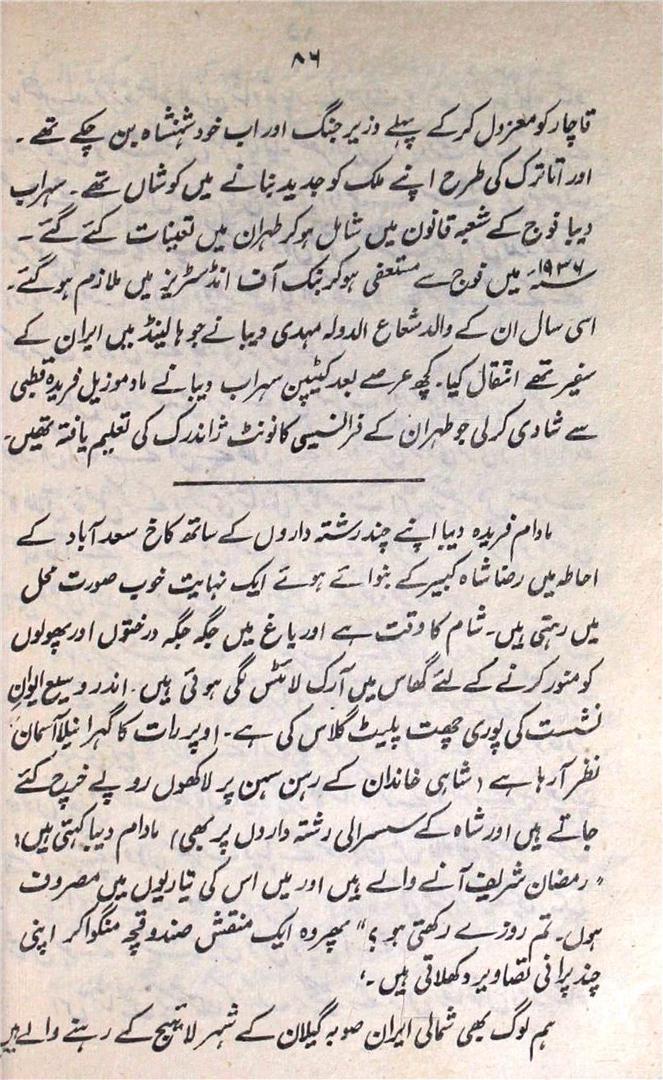 ۸۶
قاچار کو معزول کر کے پہلے وزیر جنگ اور اب خود شہنشاہ بن چکے تھے۔
اور اتاترک کی طرح اپنے ملک کو جدید بنانے میں کوشاں تھے۔ سہراب
دیبا فوج کے شعبہ قانون میں شامل ہو کر طہران میں تعینات کئے گئے۔
۱۹۳۶ء میں فوج سے مستعفی ہو کر بنک آف انڈسٹریز میں ملازم ہو گئے۔
اسی سال ان کے والد شعاع الدولہ مہدی دیبا نے جو ہالینڈ میں ایران کے
سفیر تھے انتقال کیا۔ کچھ عرصے بعد کیپٹن سہراب دیبا نے مادموزیل فریدہ قطبی
سے شادی کر لی جو طہران کے فرانسیسی کانونٹ ژاندرک کی تعلیم یافتہ تھیں۔
مادام فریدہ دیبا اپنے چند رشتہ داروں کے ساتھ کاخ سعد آباد کے
احاطہ میں رضا شاہ کبیر کے بنوائے ہوئے ایک نہایت خوب صورت محل
میں رہتی ہیں۔ شام کا وقت ہے اور باغ میں جگہ جگہ درختوں اور پھولوں
کو منور کرنے کے لئے گھاس میں آرک لائٹس لگی ہوئی ہیں۔ اندر وسیع ایوان
نشست کی پوری چھت پلیٹ گلاس کی ہے۔ اوپر رات کا گہرا نیلا آسمان
نظر آ رہا ہے (شاہی خاندان کے رہن سہن پر لاکھوں روپے خرچ کئے
جاتے ہیں اور شاہ کے سسرالی رشتہ داروں پر بھی) مادام دیبا کہتی ہیں؛
"رمضان شریف آنے والے ہیں اور میں اس کی تیاریوں میں مصروف
ہوں۔ تم روزے رکھتی ہو؟" پھر وہ ایک منقش صندوقچہ منگوا کر اپنی
چند پرانی تصاویر دکھلاتی ہیں۔'
ہم لوگ بھی شمالی ایران صوبہ گیلان کے شہر لاہیج کے رہنے والے ہیں